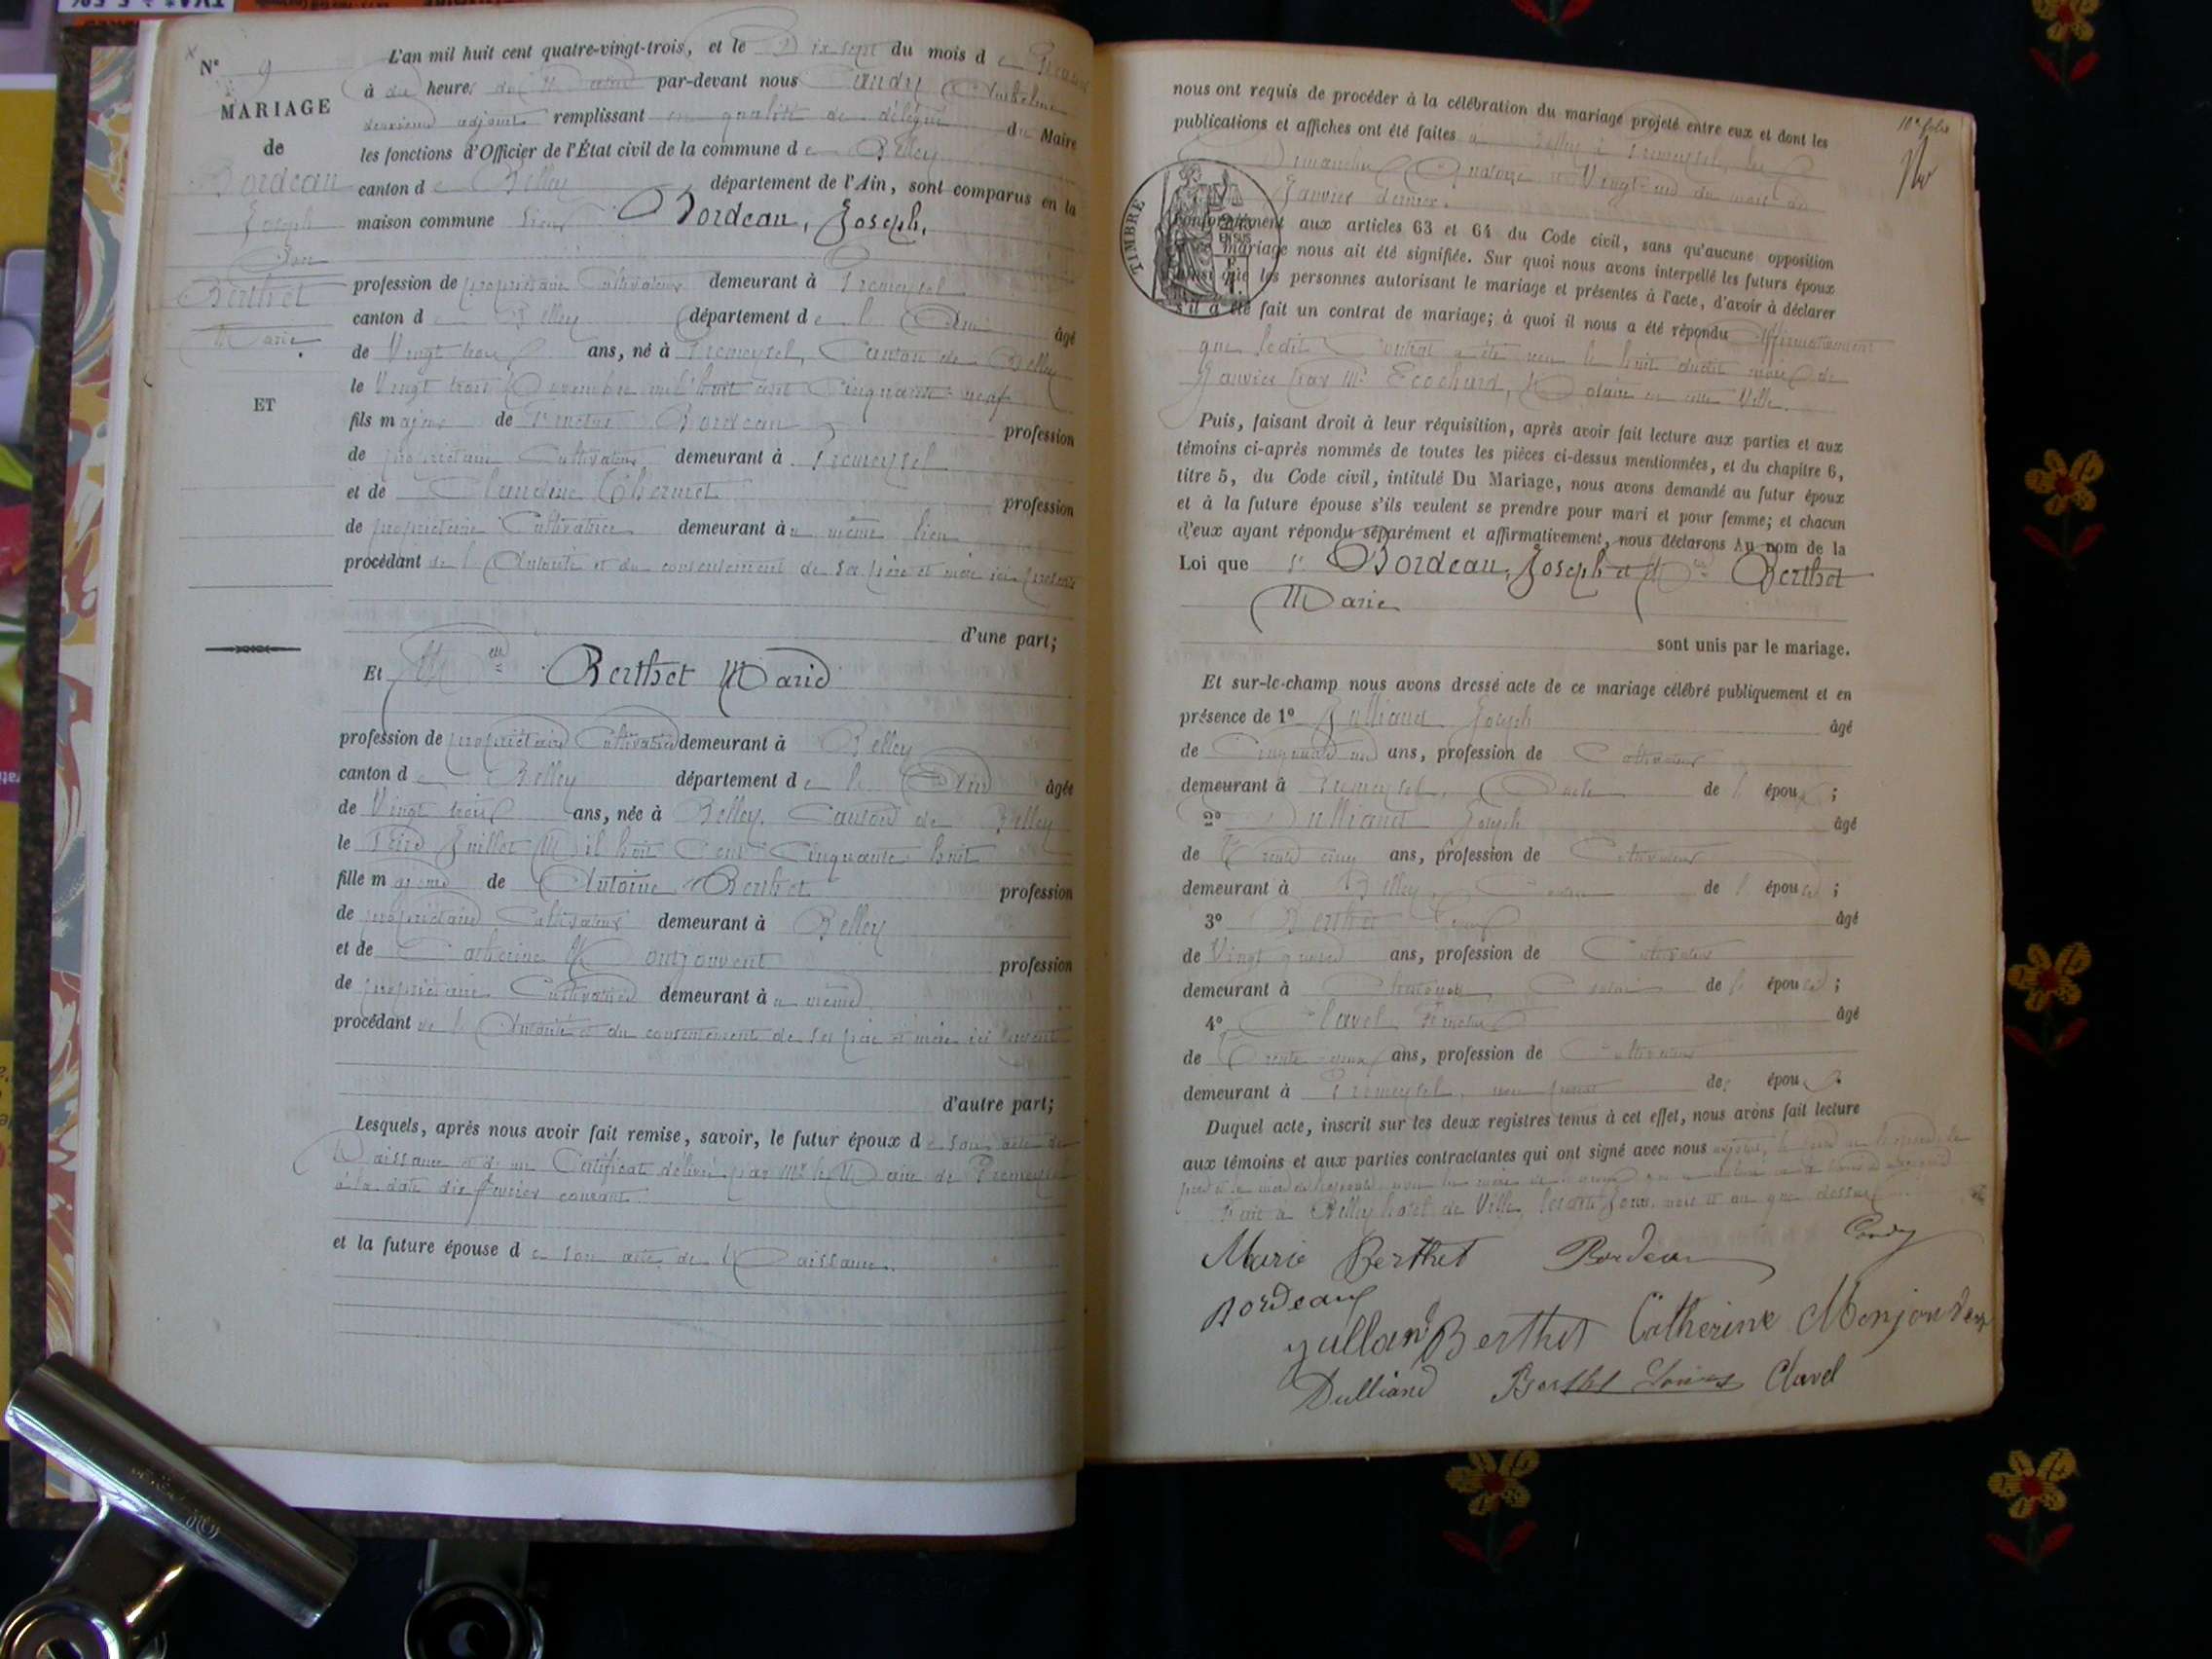 N° 9
MARIAGE
de
Bordeau
Joseph
Berthet
Marie
ET
L'an mil huit cent quatre-vingt-trois, et le Dix sept du mois de
à dix heures du Matin par-devant nous
deuxième adjoint remplissant en qualité de délégué du Maire
les fonctions d'Officier de l'État civil de la commune de Belley
canton de Belley département de l'Ain, sont comparus en la
maison commune Sieur Bordeau, Joseph,
profession de propriétaire Cultivateur demeurant à Premeyzel
canton de Belley département de l'Ain âgé
de Vingt trois ans, né à Premeyzel, Canton de Belley
le Vingt trois Novembre mil huit cent Cinquante neuf
fils majeur de Bordeau profession
de propriétaire Cultivateur demeurant à Premeyzel
et de Claudine profession
de propriétaire Cultivatrice demeurant à u même lieu
procédant de l'Autorité et du consentement de ses père et mère ici présents
d'une part;
Et Melle Berthet Marie
profession de propriétaire Cultivatrice demeurant à Belley
canton de Belley département de l'Ain âgée
de Vingt trois ans, née à Belley, Canton de Belley
le Juillet Mil huit Cent Cinquante huit
fille majeure de Antoine Berthet profession
de propriétaire Cultivateur demeurant à Belley
et de Catherine Montjouvent profession
de propriétaire Cultivatrice demeurant à u même
procédant de l'Autorité et du consentement de ses père et mère ici présents
d'autre part;
Lesquels, après nous avoir fait remise, savoir, le futur époux de son acte de
Naissance et d'un Certificat délivré par Mr le Maire de Premeyzel
à la date dix février courant
et la future épouse de son acte de Naissance.
nous ont requis de procéder à la célébration du mariage projeté entre eux et dont les
publications et affiches ont été faites a Belley & Premeyzel, les
Dimanches Quatorze et Vingt-un du mois de
Janvier dernier.
TIMBRE
Conformément aux articles 63 et 64 du Code civil, sans qu'aucune opposition
mariage nous ait été signifiée. Sur quoi nous avons interpellé les futurs époux
ainsi que les personnes autorisant le mariage et présentes à l'acte, d'avoir à déclarer
s'il a été fait un contrat de mariage; à quoi il nous a été répondu Affirmativement
que ledit Contrat a été reçu le huit dudit mois de
Janvier par Me Ecochard, Notaire en cette Ville.
Puis, faisant droit à leur réquisition, après avoir fait lecture aux parties et aux
témoins ci-après nommés de toutes les pièces ci-dessus mentionnées, et du chapitre 6,
titre 5, du Code civil, intitulé Du Mariage, nous avons demandé au futur époux
et à la future épouse s'ils veulent se prendre pour mari et pour femme; et chacun
d'eux ayant répondu séparément et affirmativement, nous déclarons Au nom de la
Loi que Sr Bordeau, Joseph et Melle Berthet
Marie
sont unis par le mariage.
Et sur-le-champ nous avons dressé acte de ce mariage célébré publiquement et en
présence de 1° Julliand Joseph âgé
de Cinquante un ans, profession de Cultivateur
demeurant à Premeyzel, Oncle de l'époux;
2° Dulliand Joseph âgé
de Trente cinq ans, profession de Cultivateur
demeurant à Belley, Cousin de l'épouse;
3° Berthet Louis âgé
de Vingt ans, profession de Cultivateur
demeurant à Cousin de l'épouse;
4° Clavel âgé
de Trente deux ans, profession de Cultivateur
demeurant à Premeyzel, non parent de époux.
Duquel acte, inscrit sur les deux registres tenus à cet effet, nous avons fait lecture
aux témoins et aux parties contractantes qui ont signé avec nous
Fait à Belley hôtel de Ville, lesdits jour, mois et an que dessus.
Marie Berthet Bordeau
Bordeau
Berthet Catherine Monjouvent
Dulliand Berthet Louis Clavel